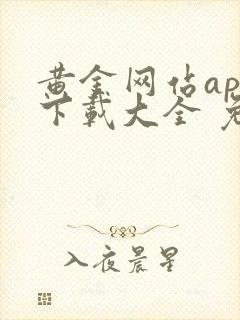 黄金网佔ap
下载大全 免
入夜晨星